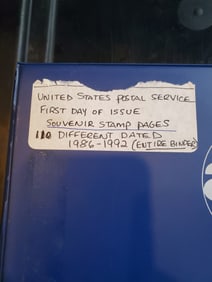 UNITED STATES POSTAL SERVICE
FIRST DAY OF ISSUE
SOUVENIR STAMP PAGES
110 DIFFERENT DATED
1986-1992 (ENTIRE BINDER)